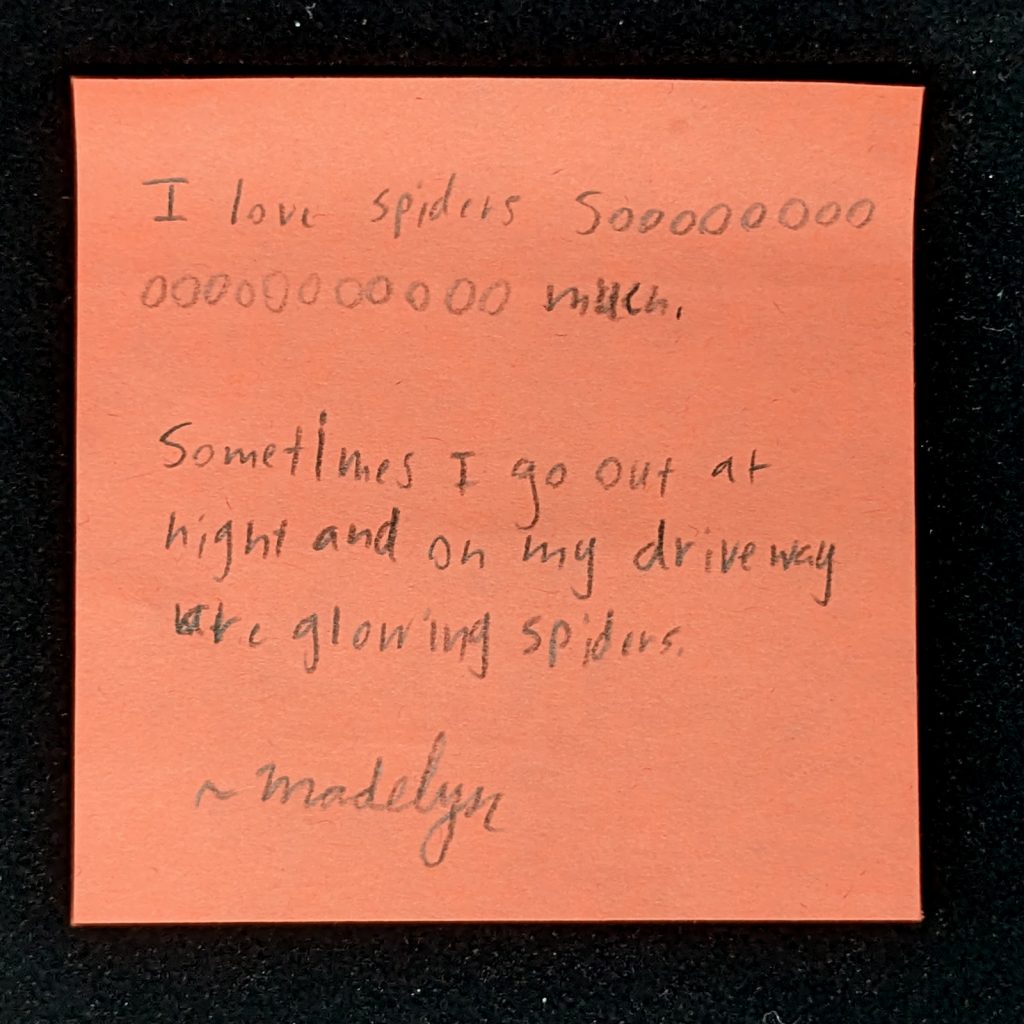 I love spiders Sooooooooo
ooooooooooo much.
Sometimes I go out at
night and on my driveway
are glowing spiders.
~ madelyn